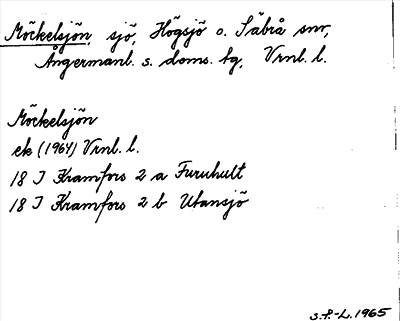 Möckelsjön, sjö, Högsjö o. Säbrå snr,
Ångermanl. s. doms. tg, Vrnl. l.
Möckelsjön
ek (1964) Vrnl. l.
18 I Kramfors 2 a Furuhult
18 I Kramfors 2 b Utansjö
S.P.-L. 1965